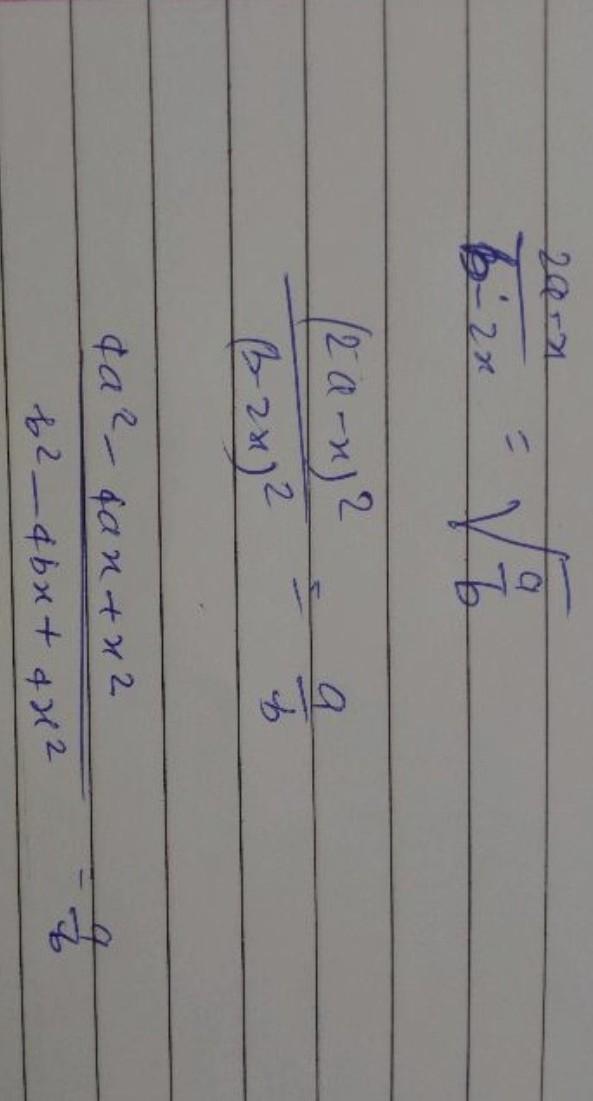 (2a-x)/(b-2x) = √(a/b)
(2a-x)²/(b-2x)² = a/b
(4a²-4ax+x²)/(b²-4bx+4x²) = a/b